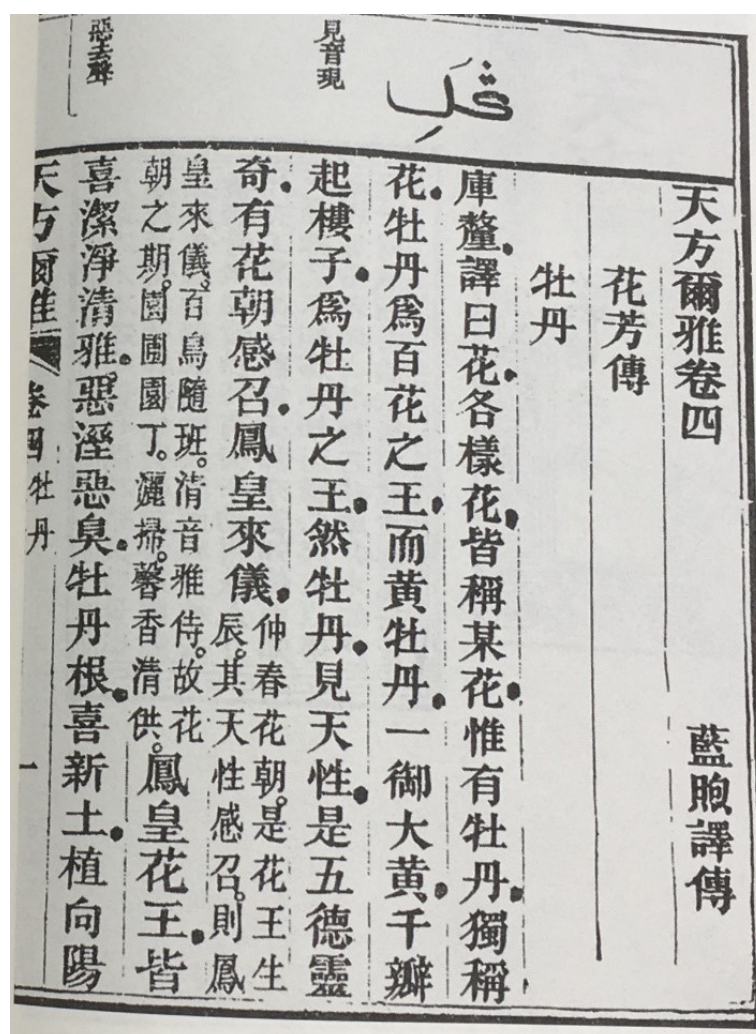 天方爾雅卷四 藍煦譯傳
花芳傳
牡丹
庫釐。譯曰花。各樣花。皆稱某花。惟有牡丹。獨稱
花。牡丹爲百花之王。而黃牡丹。一御大黃。千瓣
見音現
起樓子。爲牡丹之王。然牡丹。見天性。是五德靈
奇。有花朝感召。鳳皇來儀。
仲春花朝。是花王生
辰。其天性感召。則鳳
皇來儀。百鳥隨班。清音雅侍。故花
朝之期。園圃園丁。灑掃。馨香清供。
鳳皇花王。皆
惡去聲
喜潔淨清雅。惡溼惡臭。牡丹根。喜新土。植向陽
天方爾雅 卷四 牡丹 一